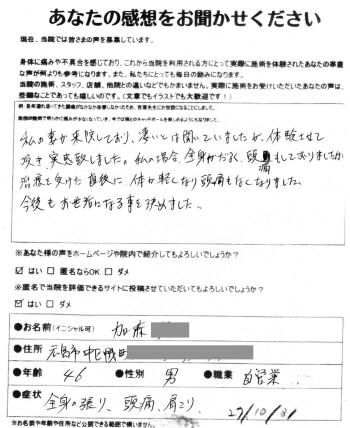 あなたの感想をお聞かせください
現在、当院では皆さまの声を募集しています。
身体に痛みや不具合を感じており、これから当院を利用される方にとって実際に施術を体験されたあなたの率直
な声が何よりも参考になります。また、私たちにとっても毎日の励みになります。
当院の施術、スタッフ、店舗、他院との違いなどでもかまいません。実際に施術をお受けいただいたあなたの声は、
些細なことであっても嬉しいのです。(文章でもイラストでも大歓迎です!)
私の妻が来院しており、凄いとは聞いていましたが、体験させて
頂き実感致しました。私の場合、全身がだるく、頭痛もしておりましたが
治療を受けた直後に体が軽くなり頭痛もなくなりました。
今後もお世話になる事を決めました。
※あなた様の声をホームページや院内で紹介してもよろしいでしょうか?
☑ はい □ 匿名ならOK □ ダメ
※匿名で当院を評価できるサイトに投稿させていただいてもよろしいでしょうか?
☑ はい □ ダメ
●お名前(イニシャル可) 加藤
●住所
●年齢 46 ●性別 男 ●職業 自営業
●症状 全身の張り、頭痛、肩こり、 27/10/31
※お名前や年齢や住所など公開できる範囲で構いません。